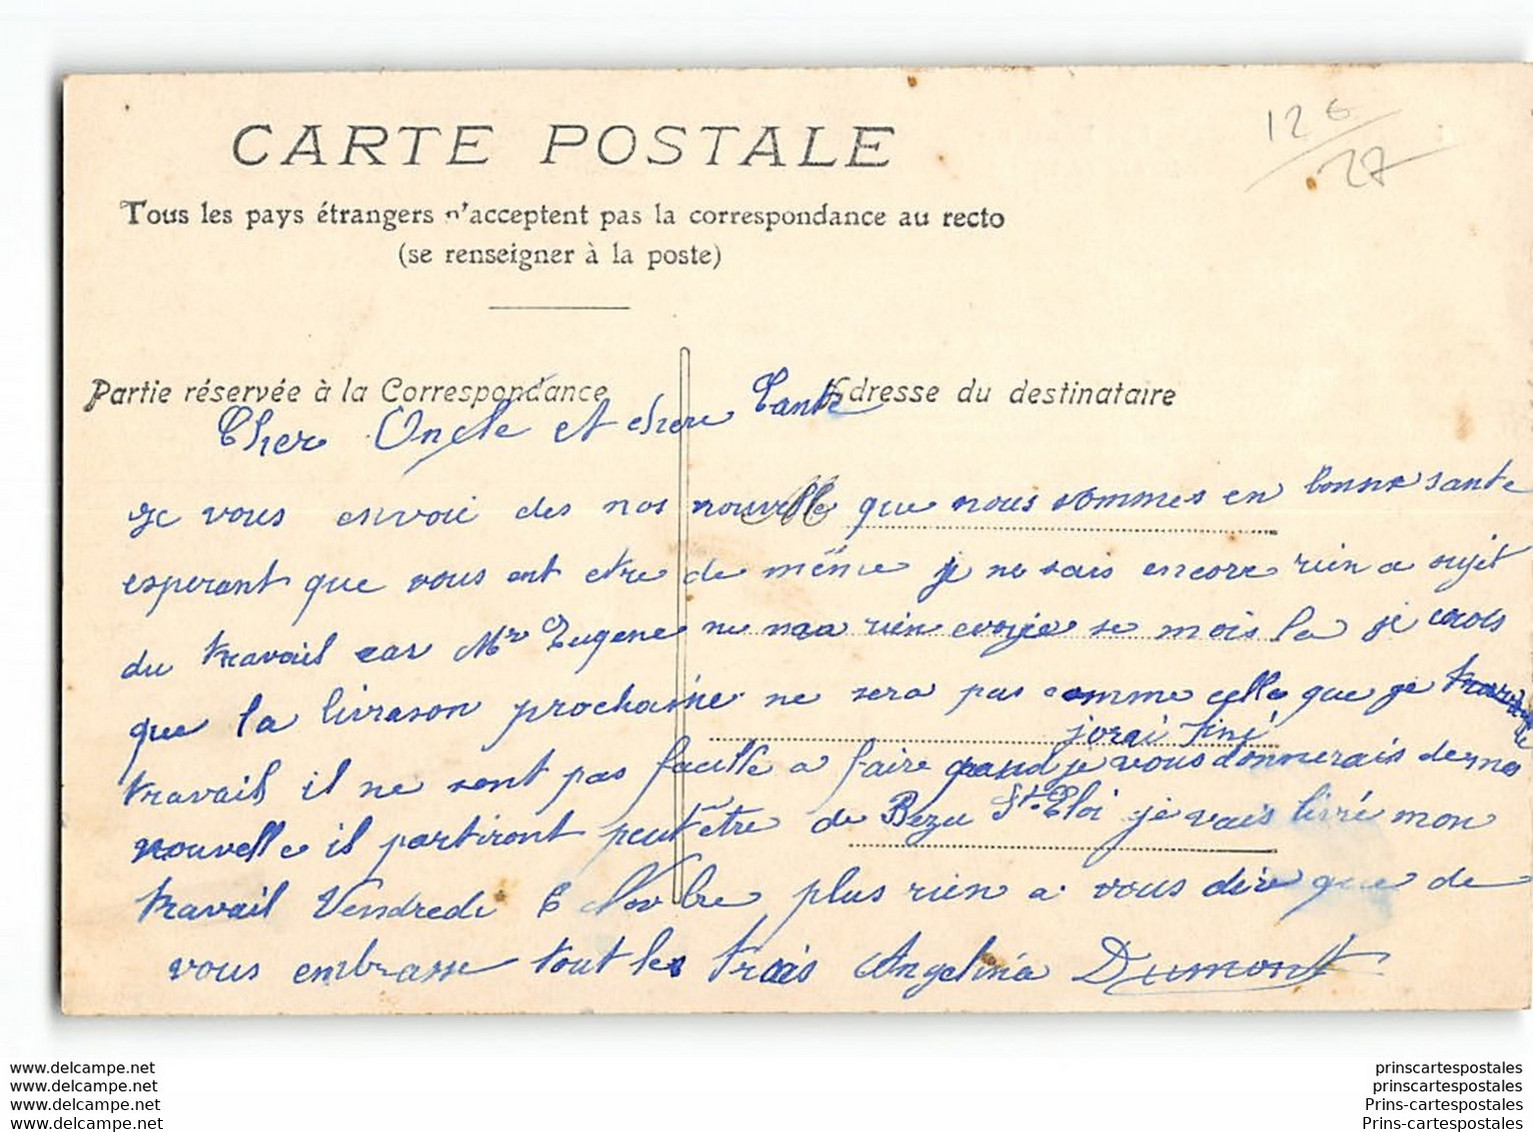 CARTE POSTALE
126
27
Tous les pays étrangers n'acceptent pas la correspondance au recto
(se renseigner à la poste)
Partie réservée à la Correspondance
Adresse du destinataire
Cher Oncle et chere Tante
je vous envoie des nos nouvelle que nous sommes en bonne sante
esperant que vous ent etre de même je ne sais encore rien a sujet
du travail car Mr Eugene ne maa rien evoyie se mois la je crois
que la livrason prochaine ne sera pas comme celle que je
jorai fini
travail il ne sont pas facille a faire quand je vous donnerais de mes
nouvelle il partiront peut être de Bezu St Eloi je vais livré mon
travail Vendredi 6 Novbre plus rien a vous dire que de
vous embrasse tout les trois Angelina Dumont
www.delcampe.net
www.delcampe.net
www.delcampe.net
www.delcampe.net
prinscartespostales
prinscartespostales
Prins-cartespostales
Prins-cartespostales